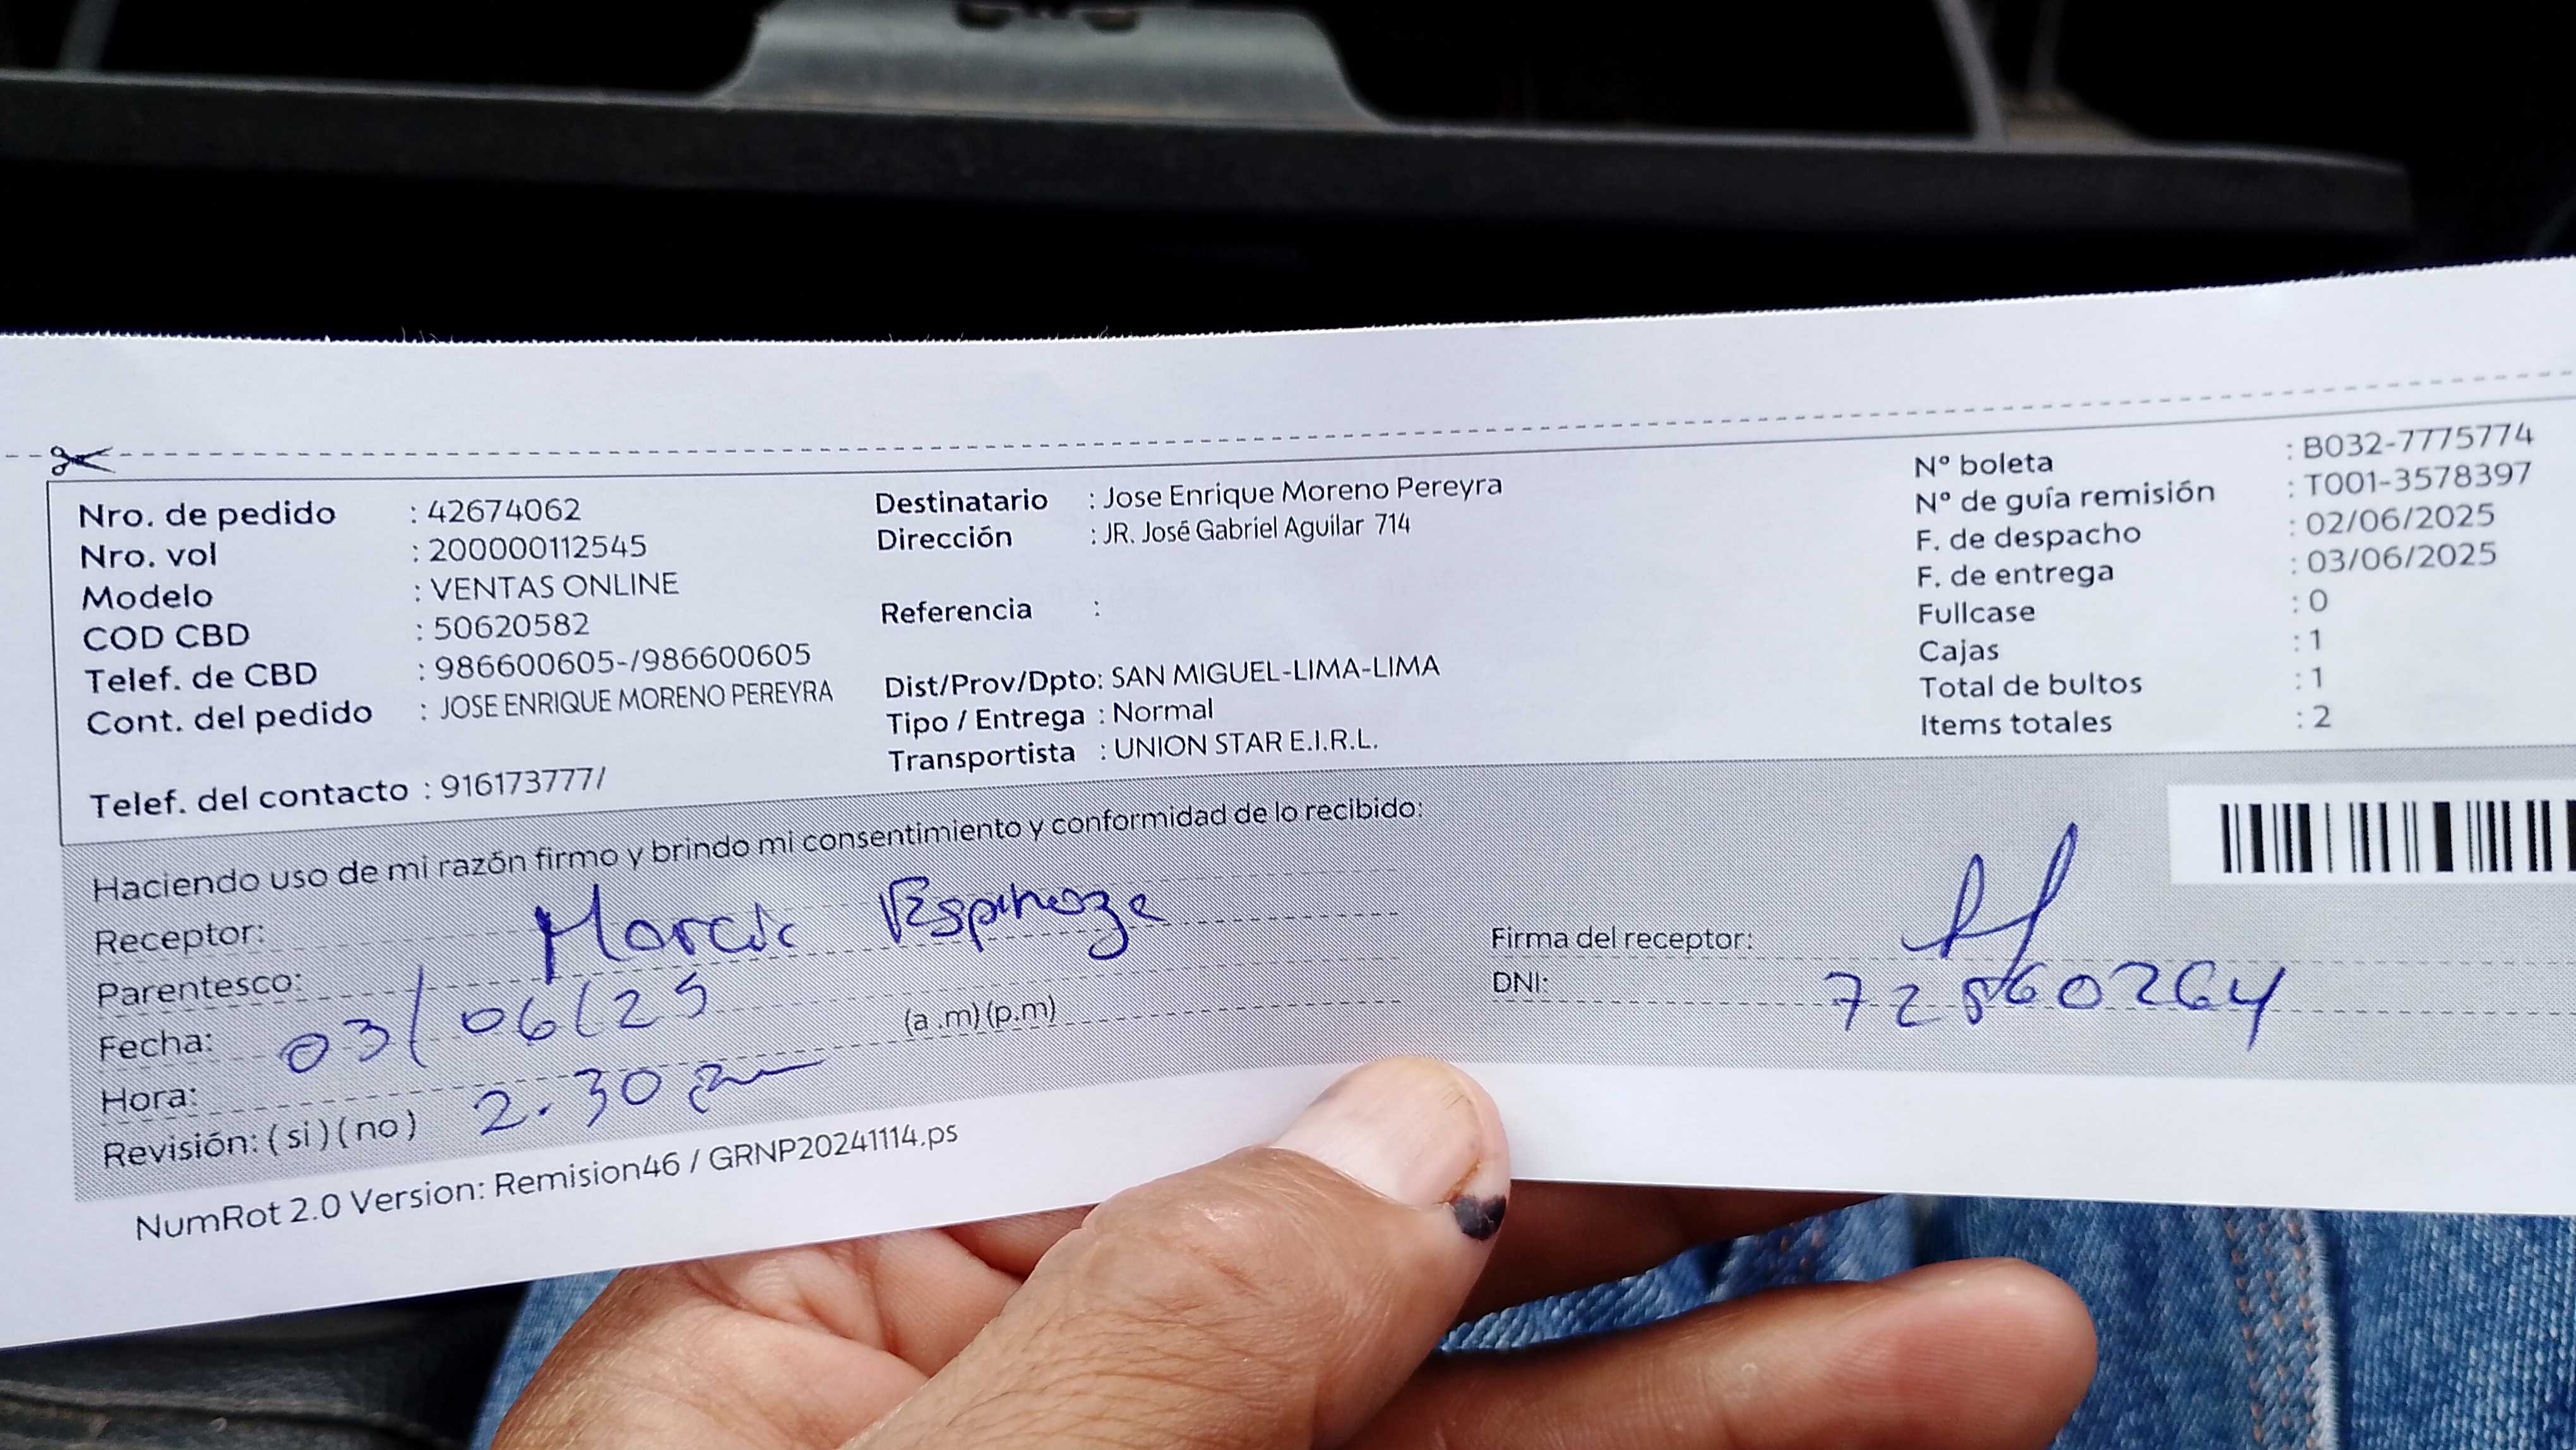 Nro. de pedido : 42674062
Nro. vol : 200000112545
Modelo : VENTAS ONLINE
COD CBD : 50620582
Telef. de CBD : 986600605-/986600605
Cont. del pedido : JOSE ENRIQUE MORENO PEREYRA
Telef. del contacto : 916173777/
Destinatario : Jose Enrique Moreno Pereyra
Dirección : JR. José Gabriel Aguilar 714
Referencia :
Dist/Prov/Dpto: SAN MIGUEL-LIMA-LIMA
Tipo / Entrega : Normal
Transportista : UNION STAR E.I.R.L.
N° boleta : B032-7775774
N° de guía remisión : T001-3578397
F. de despacho : 02/06/2025
F. de entrega : 03/06/2025
Fullcase : 0
Cajas : 1
Total de bultos : 1
Items totales : 2
Haciendo uso de mi razón firmo y brindo mi consentimiento y conformidad de lo recibido:
Receptor: Espinoza
Parentesco:
Fecha: 03/06/25
Hora: 2.30 pm (a .m) (p.m)
Revisión: ( si ) ( no )
Firma del receptor:
DNI: 72860264
NumRot 2.0 Version: Remision46 / GRNP20241114.ps